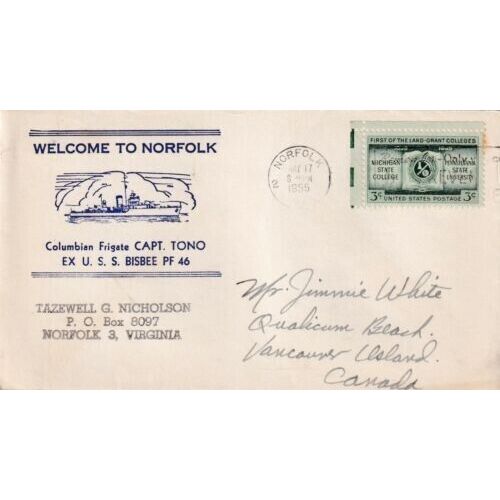 WELCOME TO NORFOLK
Columbian Frigate CAPT. TONO
EX U. S. S. BISBEE PF 46
TAZEWELL G. NICHOLSON
P. O. Box 8097
NORFOLK 3, VIRGINIA
NORFOLK
17
1955
FIRST OF THE LAND-GRANT COLLEGES
MICHIGAN STATE COLLEGE
PENNSYLVANIA STATE UNIVERSITY
3¢ UNITED STATES POSTAGE 3¢
Mr. Jimmie White
Qualicum Beach.
Vancouver Island.
Canada